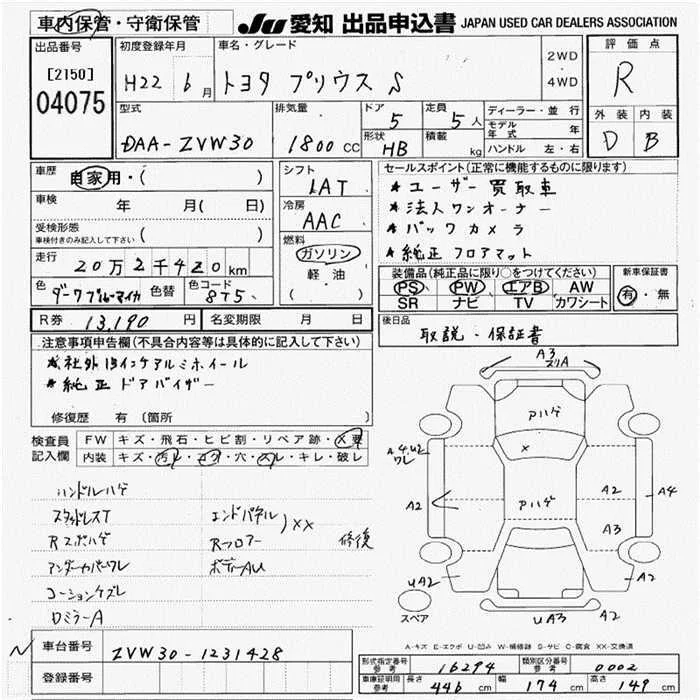 車内保管・守衛保管
JU 愛知 出品申込書 JAPAN USED CAR DEALERS ASSOCIATION
出品番号
[2150]
04075
初度登録年月
H22 6月
車名・グレード
トヨタ プリウス S
2WD
・
4WD
評価点
R
外装 内装
D B
型式
DAA-ZVW30
排気量
1800cc
ドア
5
定員
5人
形状
HB
積載
kg
ディーラー・並行
モデル年式 年
ハンドル 左・右
車歴
自家用・( )
車検
年 月( 日)
受検形態
車検付きのみ記入して下さい ( )
走行
20万2千420km
色
ダークブルーマイカ
色替
色コード
8T5
シフト
LAT
冷房
AAC
燃料
ガソリン
軽油
( )
セールスポイント(正常に機能するものに限ります)
★ユーザー買取車
★法人ワンオーナー
★バックカメラ
★純正フロアマット
装備品(純正品に限り○をつけてください)
PS PW エアB AW
SR ナビ TV カワシート
新車保証書
有・無
R券 13,190円
名変期限 月 日
後日品
取説・保証書
注意事項申告欄(不具合内容等は具体的に記入して下さい)
★社外15インチアルミホイール
★純正ドアバイザー
修復歴 有(箇所
検査員記入欄
FW キズ・飛石・ヒビ割・リペア跡・X要
内装 キズ・汚レ・コゲ・穴・スレ・キレ・破レ
ハンドルハゲ
スタッドレスT
Rスポハゲ
アンダーカバーワレ
コーションケズレ
ロミラーA
エンドパネル
Rフロアー
) XX
修復
ボディーAU
A3
アハゲ
X
アハゲ
ワレ
A2
A2
A4
A3
UA2
A2
UA3
スペア
A-キズ E-エクボ U-凹み W-補修跡 S-サビ C-腐食 XX-交換済
車台番号
ZVW30-1231428
登録番号
形式指定番号
参考
16294
類別区分番号
参考
0002
車庫証明用
参考
長さ 446cm 幅 174cm 高さ 149cm